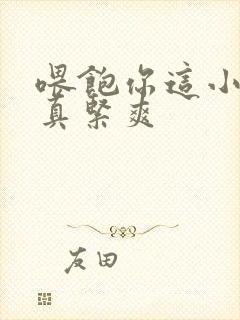 喂飽你這小
真緊爽
友田